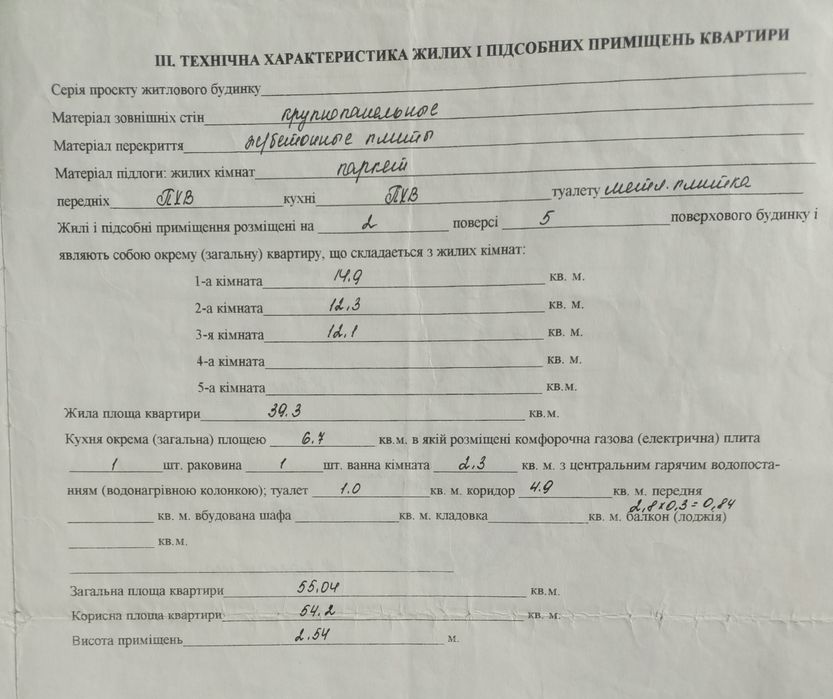 III. ТЕХНІЧНА ХАРАКТЕРИСТИКА ЖИЛИХ І ПІДСОБНИХ ПРИМІЩЕНЬ КВАРТИРИ
Серія проєкту житлового будинку
Матеріал зовнішніх стін крупнопанельные
Матеріал перекриття ж/бетонные плиты
Матеріал підлоги: жилих кімнат паркет
передніх ПХВ кухні ПХВ туалету метл. плитка
Жилі і підсобні приміщення розміщені на 2 поверсі 5 поверхового будинку і
являють собою окрему (загальну) квартиру, що складається з жилих кімнат:
1-а кімната 14.9 кв. м.
2-а кімната 12,3 кв. м.
3-я кімната 12,1 кв. м.
4-а кімната кв. м.
5-а кімната кв.м.
Жила площа квартири 39.3 кв.м.
Кухня окрема (загальна) площею 6.7 кв.м. в якій розміщені комфорочна газова (електрична) плита
1 шт. раковина 1 шт. ванна кімната 2,3 кв. м. з центральним гарячим водопоста-
нням (водонагрівною колонкою); туалет 1.0 кв. м. коридор 4.9 кв. м. передня
2,8x0,3=0,84
кв. м. вбудована шафа кв. м. кладовка кв. м. балкон (лоджія)
кв.м.
Загальна площа квартири 55,04 кв.м.
Корисна площа квартири 54.2 кв. м.
Висота приміщень 2.54 м.